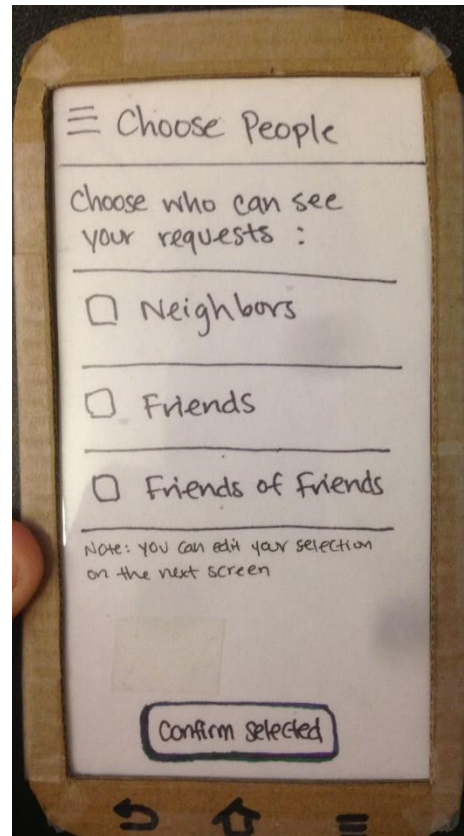 Choose People
Choose who can see
your requests :
Neighbors
Friends
Friends of Friends
Note: you can edit your selection
on the next screen
Confirm selected